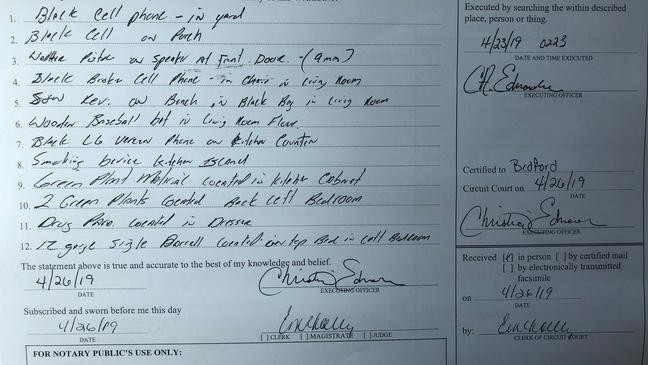 1. Black Cell phone - in yard
2. Black Cell on Porch
3. Pistol on Speaker At Front Door - (9mm)
4. Black Broken Cell Phone - in Chair in Living Room
5. Rev. on Bench in Black Bag in Living Room
6. Wooden Baseball bat in Living Room Floor
7. Black LG Verizon Phone on Kitchen Counter
8. Smoking Device Kitchen Island
9. Green Plant Material Located in Kitchen Cabinet
10. 2 Green Plants Located Back Left Bedroom
11. Drug Para. Located in Dresser
12. 12 gauge Single Barrell Located on top Bed in Left Bedroom
The statement above is true and accurate to the best of my knowledge and belief.
4/26/19
DATE
EXECUTING OFFICER
Subscribed and sworn before me this day
4/26/19
DATE
[ ] CLERK [ ] MAGISTRATE [ ] JUDGE
FOR NOTARY PUBLIC'S USE ONLY:
Executed by searching the within described
place, person or thing.
4/23/19 0223
DATE AND TIME EXECUTED
EXECUTING OFFICER
Certified to Bedford
Circuit Court on 4/26/19
DATE
EXECUTING OFFICER
Received [x] in person [ ] by certified mail
[ ] by electronically transmitted
facsimile
on 4/26/19
DATE
by:
CLERK OF CIRCUIT COURT